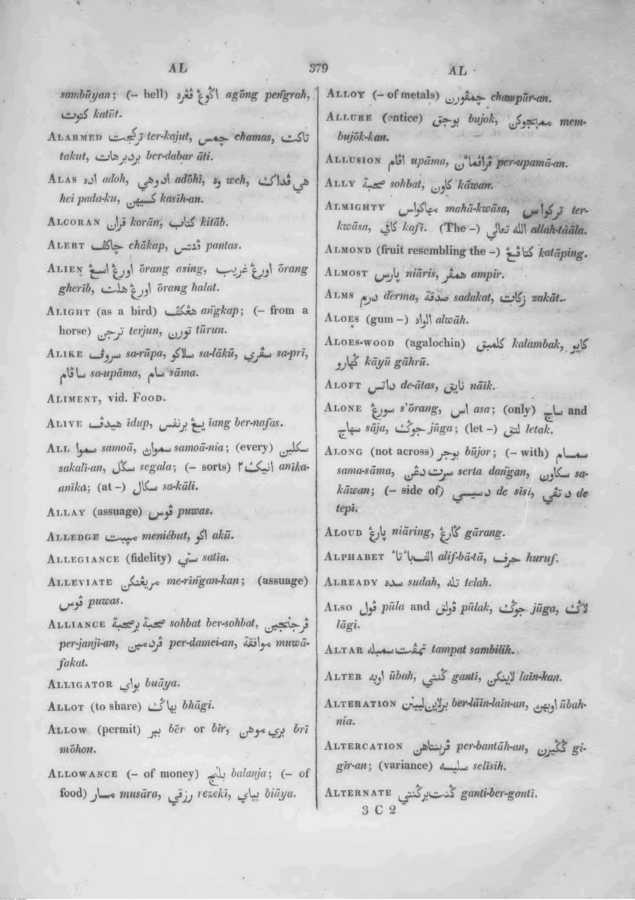 AL 379 AL
sambūyan; (– hell) اگوڠ ڤڠره agōng pen̄grah,
كتوت katūt.
ALARMED تركجت ter-kajut, چمس chamas, تاكت
takut, بردبر هات ber-dabar āti.
ALAS اده adoh, ادوهي adōhī, وه weh, هي ڤداكت
hei pada-ku, كسيهن kasih-an.
ALCORAN قران korān, كتاب kitāb.
ALERT چاكڤ chākap, ڤنتس pantas.
ALIEN اورڠ اسڠ ōrang asing, اورڠ غريب ōrang
gherīb, اورڠ هلت ōrang halat.
ALIGHT (as a bird) هڠكڤ an̄gkap; (– from a
horse) ترجن terjun, تورن tūrun.
ALIKE سروڤ sa-rūpa, سلاكو sa-lākū, سڤري sa-prī,
سأڤام sa-upāma, سام sāma.
ALIMENT, vid. FOOD.
ALIVE هيدڤ īdup, يڠ برنفس īang ber-nafas.
ALL سموا samoā, سموان samoā-nia; (every) سكلين
sakali-an, سگل segala; (– sorts) انيك٢ anīka-
anīka; (at –) سكال sa-kāli.
ALLAY (assuage) ڤوس puwas.
ALLEDGE meniēbut, اكو akū.
ALLEGIANCE (fidelity) ستي satia.
ALLEVIATE مريڠنكن me-rin̄gan-kan; (assuage)
ڤوس puwas.
ALLIANCE صحبة برصحبة sohbat ber-sohbat, ڤرجنجين
per-janji-an, ڤردمين per-damei-an, موافقة muwā-
fakat.
ALLIGATOR بواي buāya.
ALLOT (to share) بهاگي bhāgi.
ALLOW (permit) بير bēr or bīr, بري موهن brī
mōhon.
ALLOWANCE (– of money) بلنج balanja; (– of
food) مسار musāra, رزقي rezekī, بياي biāya.
ALLOY (– of metals) چمڤورن champūr-an.
ALLURE (entice) بوجق bujok, ممبوجقكن mem-
bujōk-kan.
ALLUSION اڤام upāma, ڤراڤمان per-upamā-an.
ALLY صحبة sohbat, كاون kāwan.
ALMIGHTY مهاكواس mahā-kwāsa, تركواس ter-
kwāsa, كافي kafī. (The –) الله تعالي allah-tāāla.
ALMOND (fruit resembling the –) كتاڤڠ katāping.
ALMOST يارس niāris, همڤر ampir.
ALMS درم derma, صدقة sadakat, زكات zakāt.
ALOES (gum –) الواه alwāh.
ALOES-WOOD (agalochin) كلمبق kalambak, كايو
گهارو kāyū gāhrū.
ALOFT داتس de-ātas, نايق nāik.
ALONE سورڠ s'ōrang, اس asa; (only) ساج and
سهاج sāja, جوگ jūga; (let –) لتق letak.
ALONG (not across) بوجر būjor; (– with) سمسام
sama-sāma, سرت دڠن serta dan̄gan, سكاون sa-
kāwan; (– side of) دسيسي de sisi, د تڤي de
tepi.
ALOUD يارڠ niāring, گارڠ gārang.
ALPHABET الف با تا alif-bā-tā, حرف huruf.
ALREADY سده sudah, تله telah.
ALSO ڤول pūla and ڤولق pūlak, جوگ jūga, لاگ
lāgi.
ALTAR تمڤت سمبله tampat sambilih.
ALTER اوبه ūbah, گنتي ganti, لاينكن lain-kan.
ALTERATION برلاين لاينن ber-lāin-lain-an, اوبهن ūbah-
nia.
ALTERCATION ڤربنتاهن per-bantāh-an, گيگيرن gi-
gīr-an; (variance) سليسه selīsih.
ALTERNATE گنتي برگنتي ganti-ber-ganti.
3 C 2